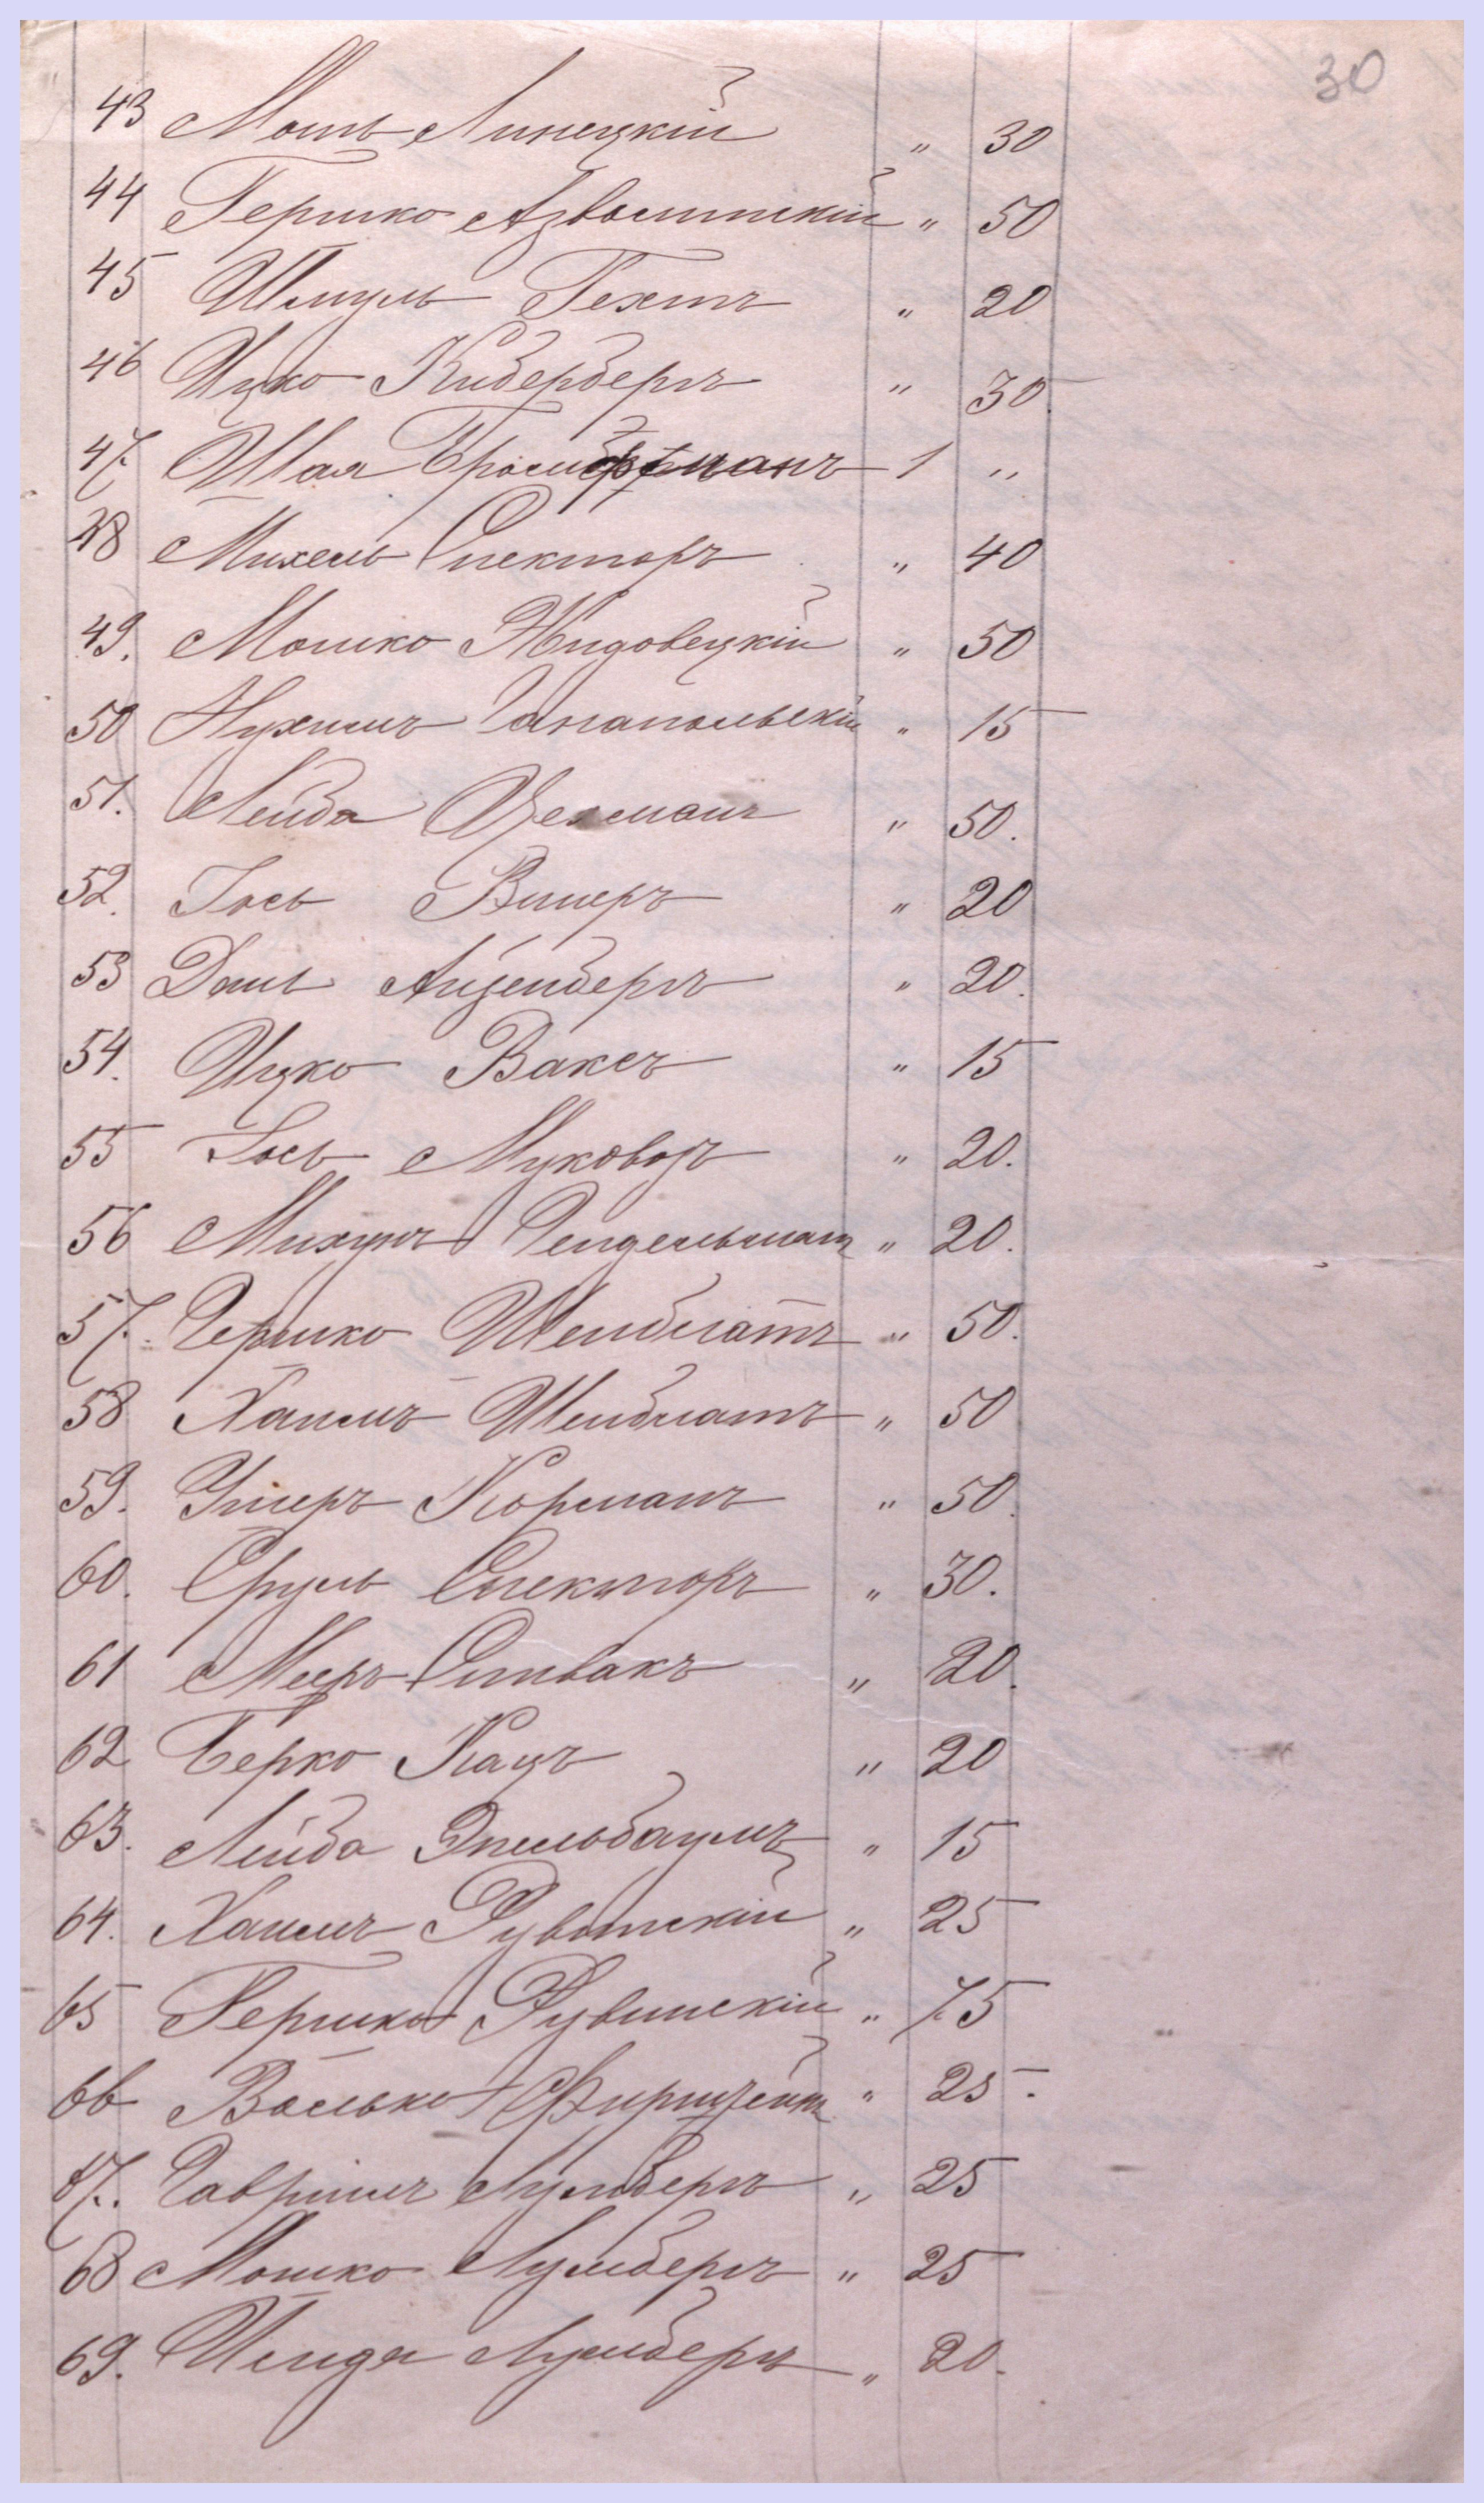 30
43 Мошъ Линецкій " 30
44 Гершко " 50
45 Шмуль Гехтъ " 20
46 Ицко Кидерберъ " 30
47. Шая 1 "
48 Михель Спекторъ " 40
49. Мошко Жидовецкій " 50
50 Нухимъ Ганапольскій " 15
51. Лейба Цехманъ " 50.
52. Іось Винеръ " 20
53 Данъ Айзенбергъ " 20.
54. Ицко Ваксъ " 15
55 Іось Муковозъ " 20.
56 Михумъ Гендельманъ " 20.
57. Гершко Шейблатъ " 50.
58 Хаимъ Шейблатъ " 50
59. Ушеръ Корманъ " 50.
60. Сруль Спекторъ " 30.
61 Мееръ Спивакъ " 20.
62 Берко Кацъ " 20
63. Лейба Эпельбаумъ " 15
64. Хаимъ Рувинскій " 25
65 Гершко Рувинскій " 75
66 Волько " 25.
67. Гавріилъ Лумбергъ " 25
68 Мошко Лумбергъ " 25
69. Шендя Лумбергъ " 20.